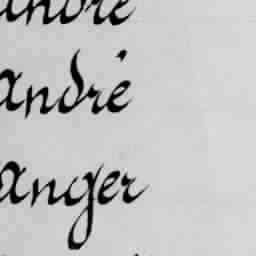 andré
andré
anger